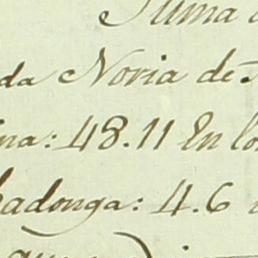 Suma
da Noria de
na: 48.11 En lo
adonga: 4.6